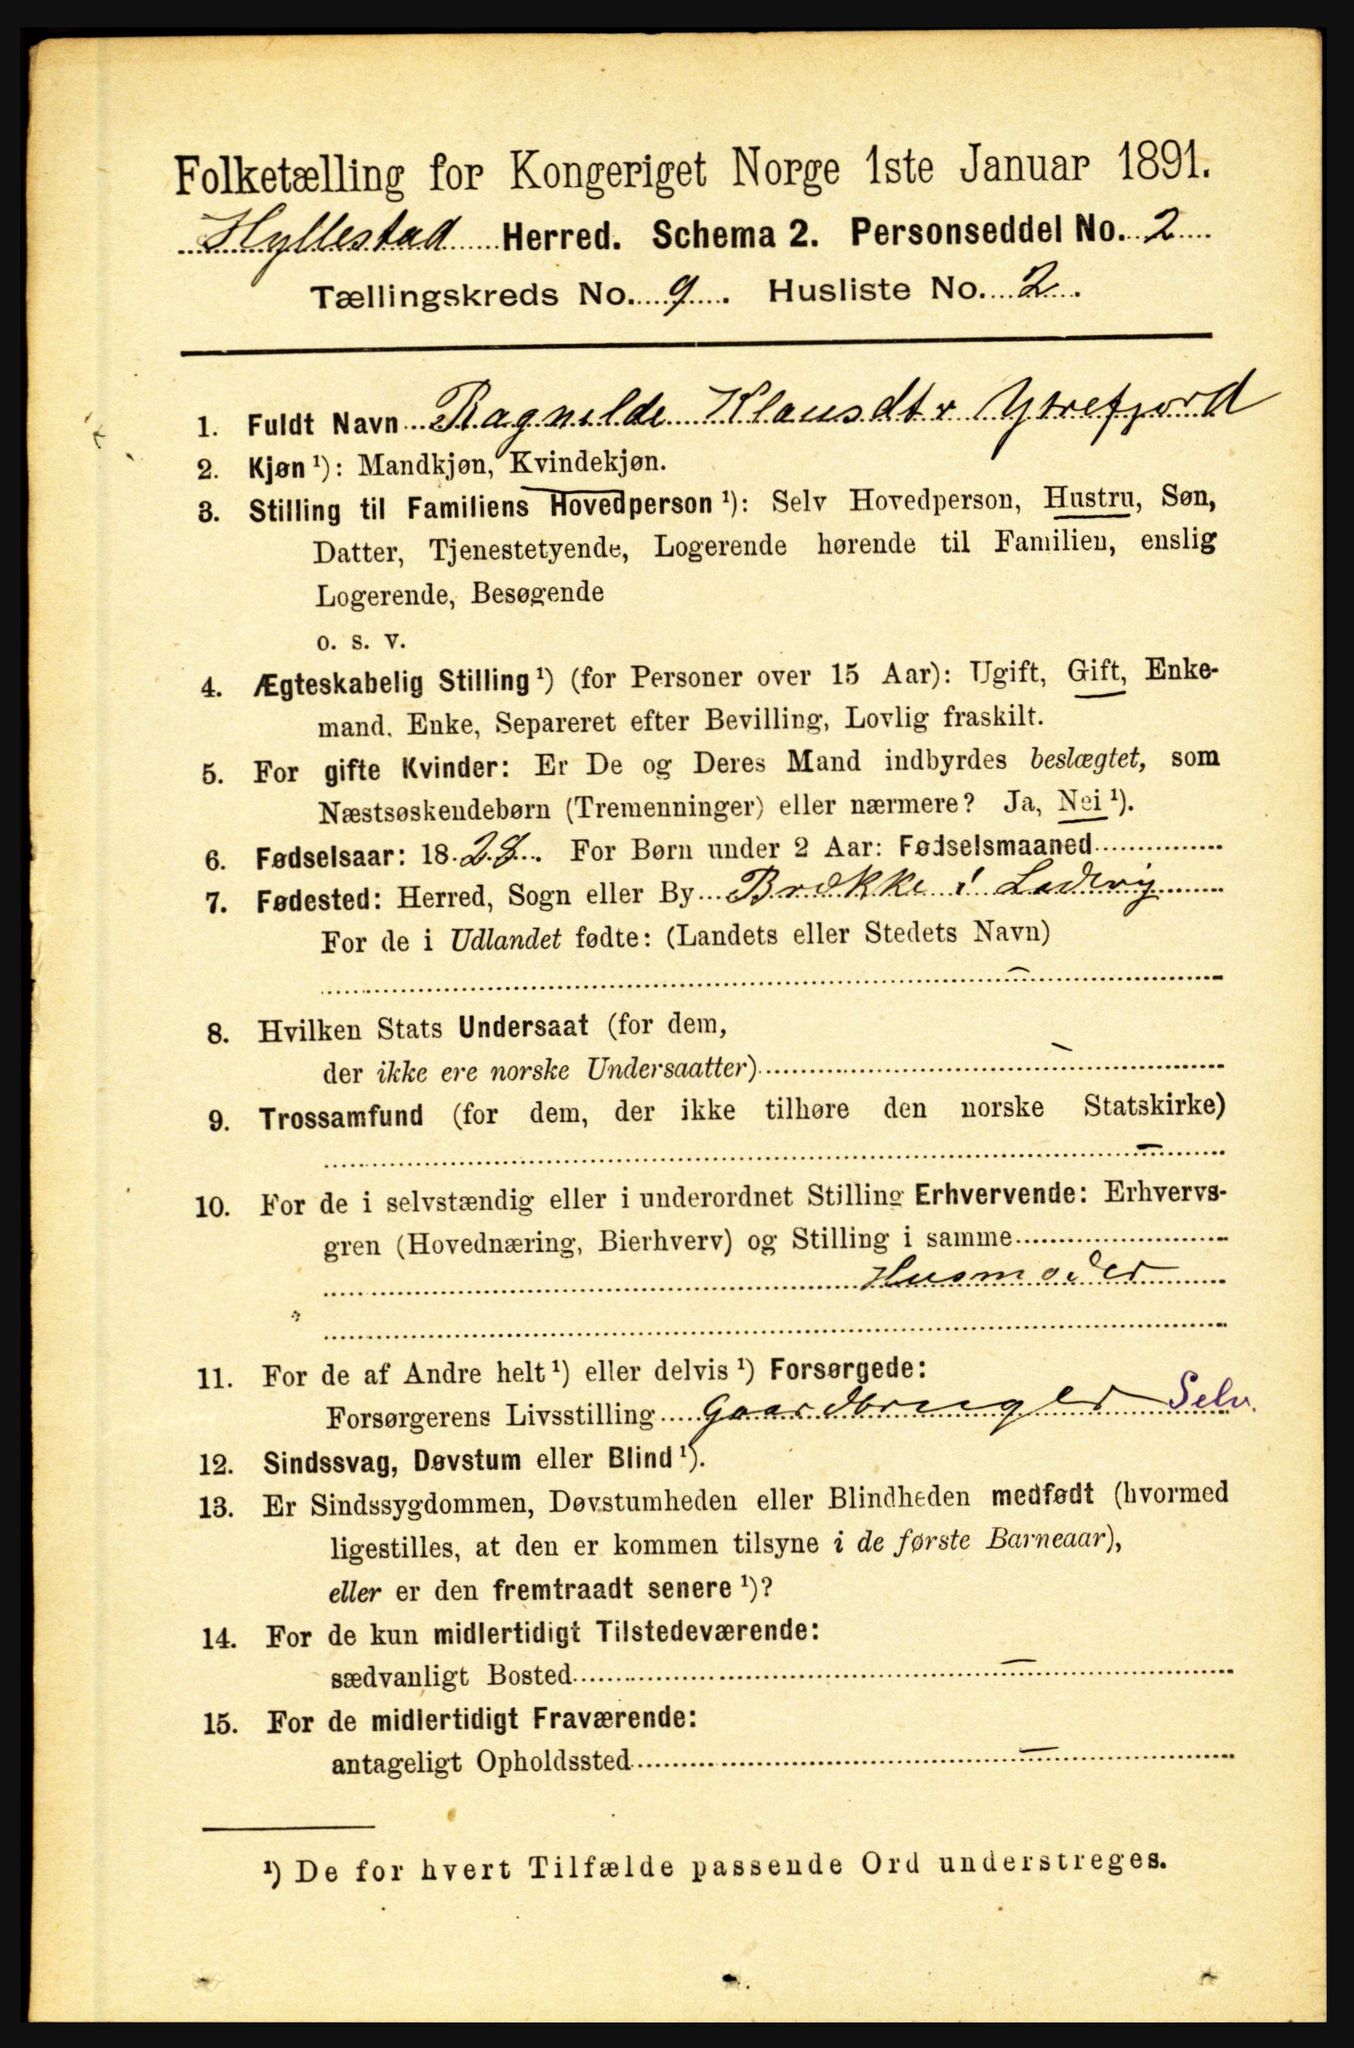 Folketælling for Kongeriget Norge 1ste Januar 1891.
Hyllestad Herred. Schema 2. Personseddel No. 2
Tællingskreds No. 9. Husliste No. 2.
1. Fuldt Navn Ragnilde Klausdtr Ytrefjord
2. Kjøn ¹): Mandkjøn, Kvindekjøn.
3. Stilling til Familiens Hovedperson ¹): Selv Hovedperson, Hustru, Søn,
Datter, Tjenestetyende, Logerende hørende til Familien, enslig
Logerende, Besøgende
o. s. v.
4. Ægteskabelig Stilling ¹) (for Personer over 15 Aar): Ugift, Gift, Enke-
mand, Enke, Separeret efter Bevilling, Lovlig fraskilt.
5. For gifte Kvinder: Er De og Deres Mand indbyrdes beslægtet, som
Næstsøskendebørn (Tremenninger) eller nærmere? Ja, Nei ¹).
6. Fødselsaar: 1828. For Børn under 2 Aar: Fødselsmaaned
7. Fødested: Herred, Sogn eller By Brække i Ladvig
For de i Udlandet fødte: (Landets eller Stedets Navn)
—
8. Hvilken Stats Undersaat (for dem,
der ikke ere norske Undersaatter) —
9. Trossamfund (for dem, der ikke tilhøre den norske Statskirke)
—
10. For de i selvstændig eller i underordnet Stilling Erhvervende: Erhvervs-
gren (Hovednæring, Bierhverv) og Stilling i samme
Husmoder
11. For de af Andre helt ¹) eller delvis ¹) Forsørgede:
Forsørgerens Livsstilling Gaardbruger Selv.
12. Sindssvag, Døvstum eller Blind ¹).
13. Er Sindssygdommen, Døvstumheden eller Blindheden medfødt (hvormed
ligestilles, at den er kommen tilsyne i de første Barneaar),
eller er den fremtraadt senere ¹)?
14. For de kun midlertidigt Tilstedeværende:
sædvanligt Bosted —
15. For de midlertidigt Fraværende:
antageligt Opholdssted —
¹) De for hvert Tilfælde passende Ord understreges.